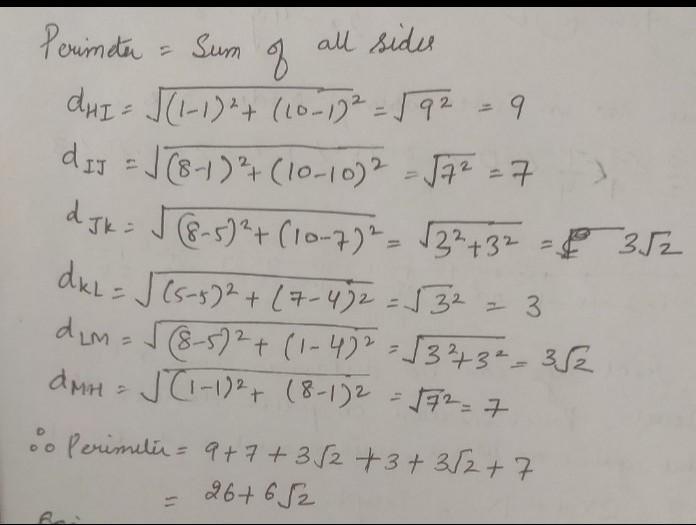 Perimeter = Sum of all sides
d_HI = √((1-1)² + (10-1)²) = √9² = 9
d_IJ = √((8-1)² + (10-10)²) = √7² = 7
d_JK = √((8-5)² + (10-7)²) = √(3²+3²) = 3√2
d_KL = √((5-5)² + (7-4)²) = √3² = 3
d_LM = √((8-5)² + (1-4)²) = √(3²+3²) = 3√2
d_MH = √((1-1)² + (8-1)²) = √7² = 7
∴ Perimeter = 9+7+3√2+3+3√2+7
= 26+6√2